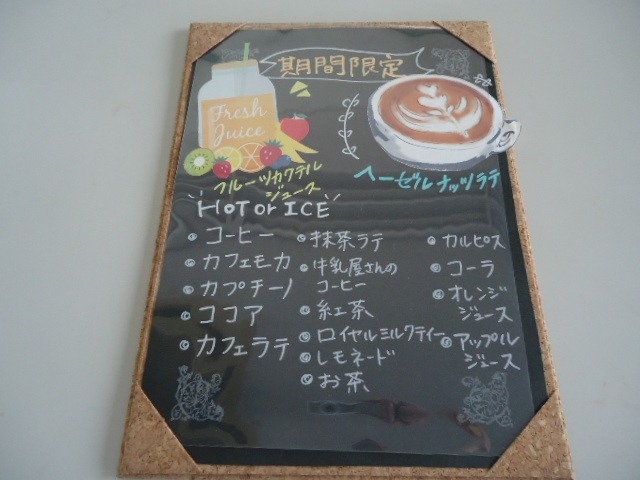 期間限定
Fresh
Juice
フルーツカクテル
ジュース
ヘーゼルナッツラテ
HOT or ICE
コーヒー
カフェモカ
カプチーノ
ココア
カフェラテ
抹茶ラテ
牛乳屋さんの
コーヒー
紅茶
ロイヤルミルクティー
レモネード
お茶
カルピス
コーラ
オレンジ
ジュース
アップル
ジュース